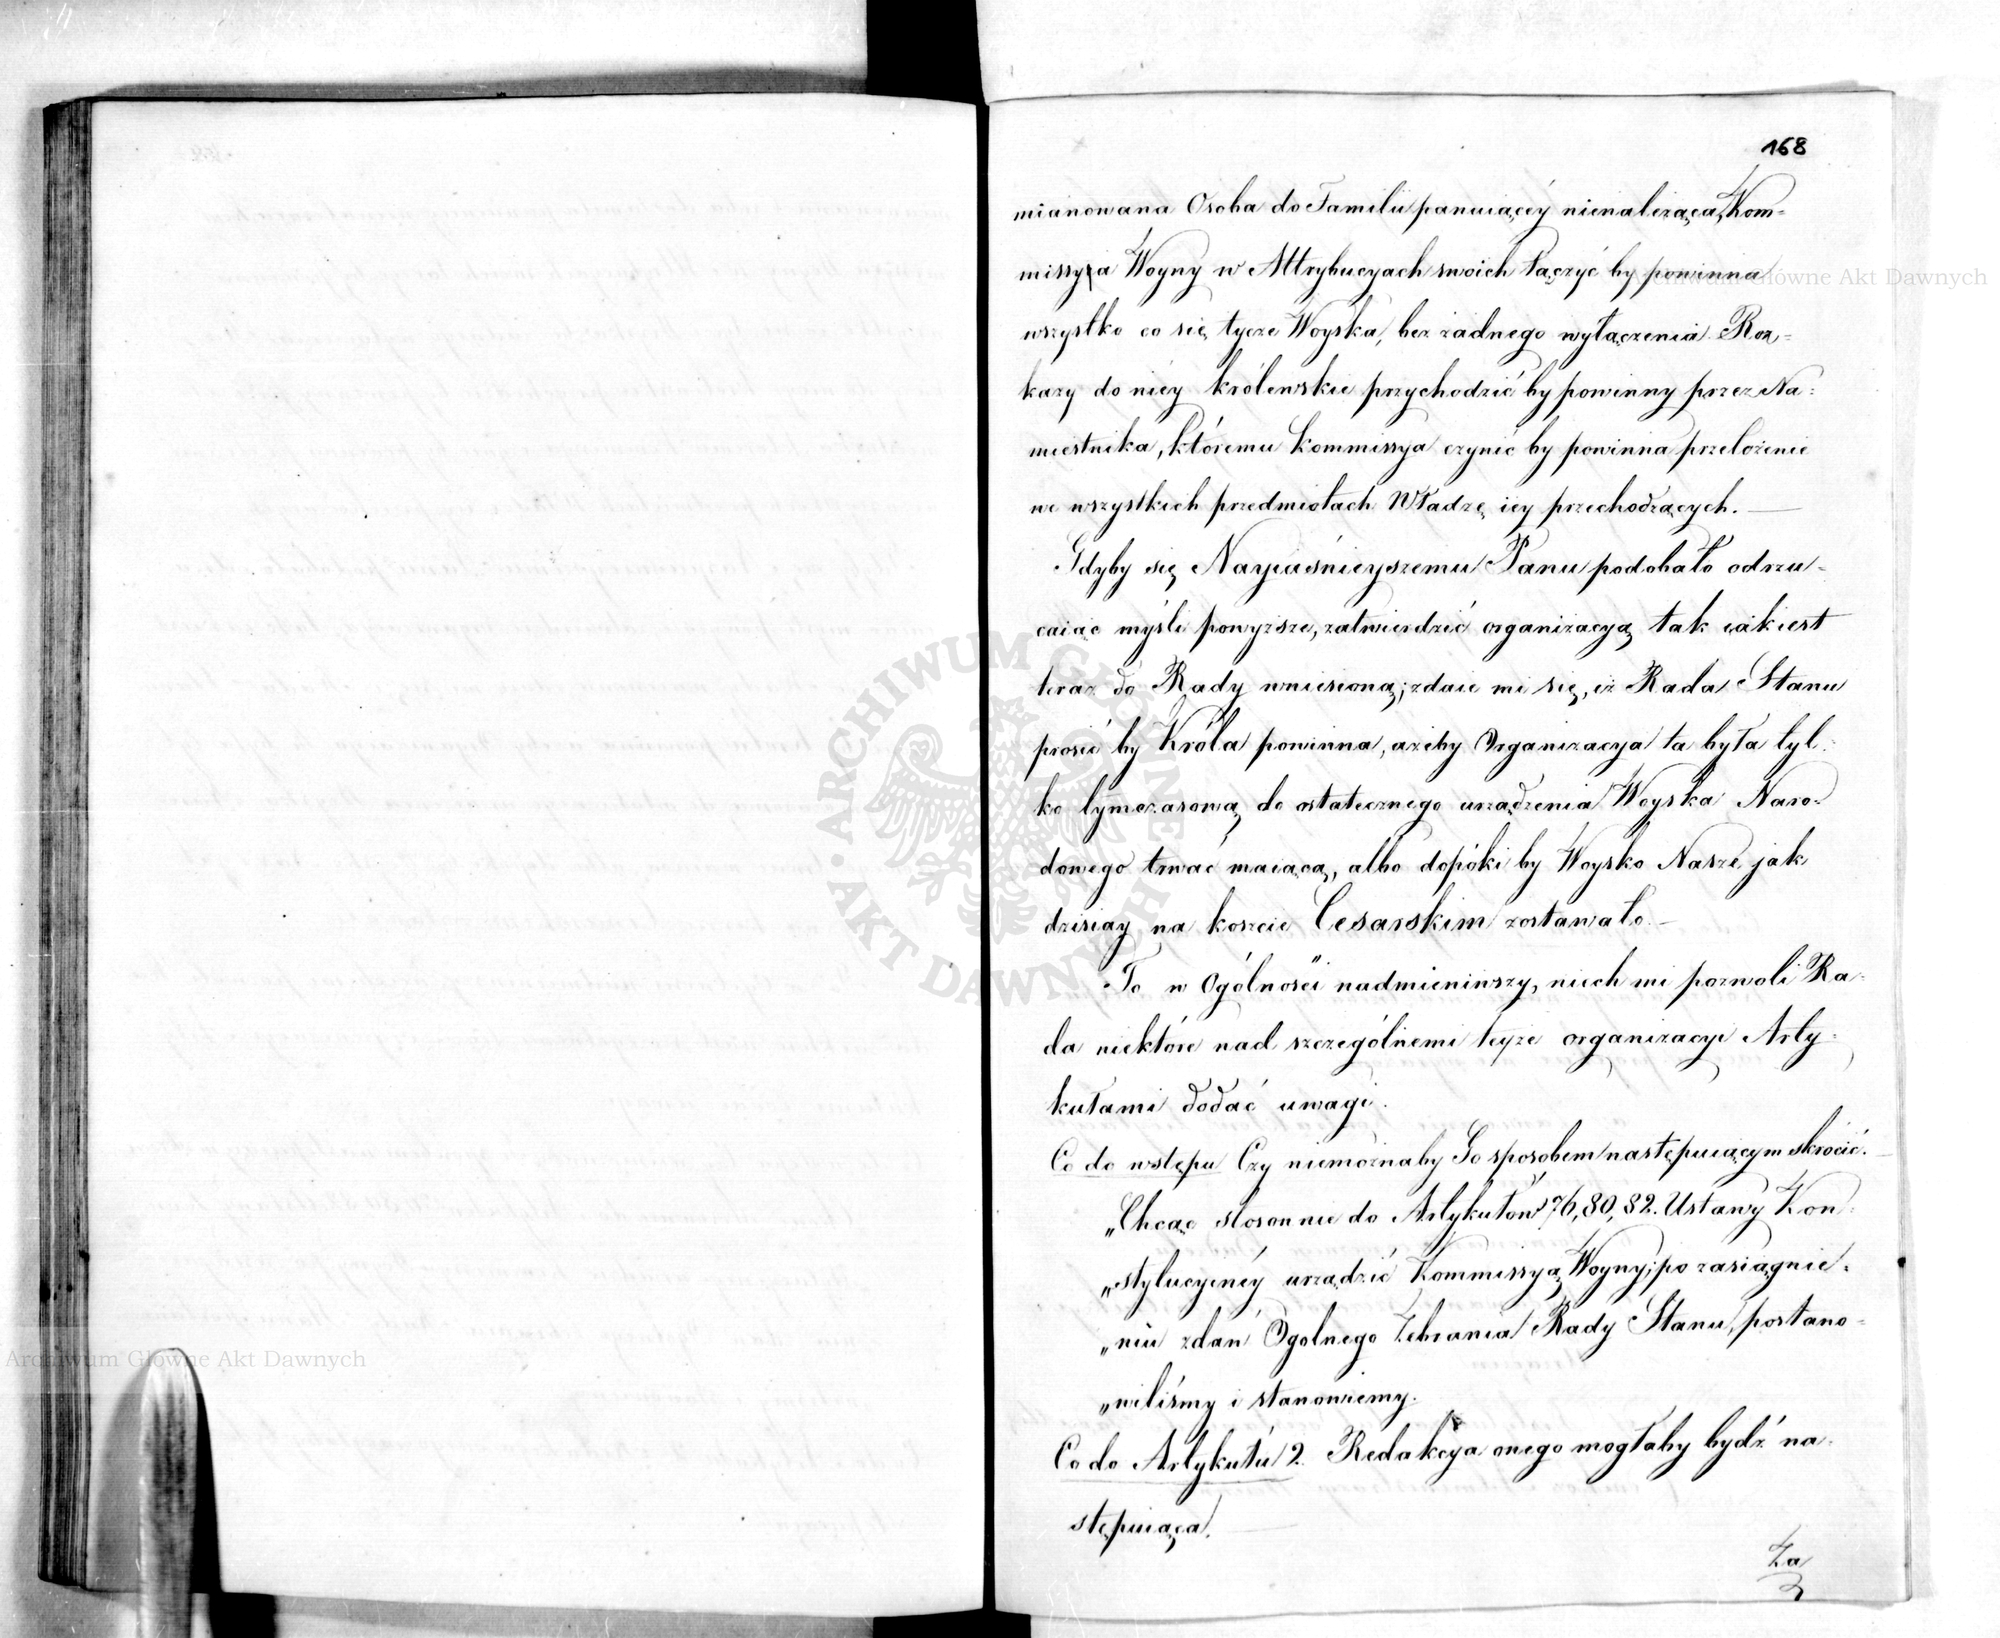 168
mianowana Osoba do Familii panuiącéy nienależąca, Kom-
missya Woyny w Attrybucyach swoich łączyć by powinna
wszystko co się tycze Woyska, bez żadnego wyłączenia. Roz-
kazy do niéy królewskie przychodzić by powinny przez Na-
miestnika, któremu Kommissya czynić by powinna przełożenie
we wszystkich przedmiotach Władzę iéy przechodzących. —
Gdyby się Nayiaśnieyszemu Panu podobało odrzu-
caiąc myśli powyższe, zatwierdzić organizacyą tak iak iest
teraz do Rady wniesioną; zdaie mi się, iż Rada Stanu
prosić by Króla powinna, ażeby Organizacya ta była tyl-
ko tymczasową do ostatecznego urządzenia Woyska Naro-
dowego trwać maiącą, albo dopóki by Woysko Nasze, jak
dzisiay na koszcie Cesarskim zostawało. —
To w Ogólności nadmieniwszy, niech mi pozwoli Ra-
da niektóre nad szczególnemi teyże organizacyi Arty-
kułami dodać uwagi.
Co do wstępu Czy niemożnaby Go sposobem następuiącym skrócić. —
„Chcąc stosownie do Artykułów 76, 80, 82. Ustawy Kon-
„stytucyinéy urządzić Kommissyą Woyny; po zasiągnie-
„niu zdań Ogolnego Zebrania Rady Stanu, postano-
„wiliśmy i stanowiemy.
Co do Artykułu 2. Redakcya onego mogłaby bydź na-
stępuiąca. —
Za
Archiwum Główne Akt Dawnych
Archiwum Główne Akt Dawnych
ARCHIWUM GŁÓWNE • AKT DAWNYCH •